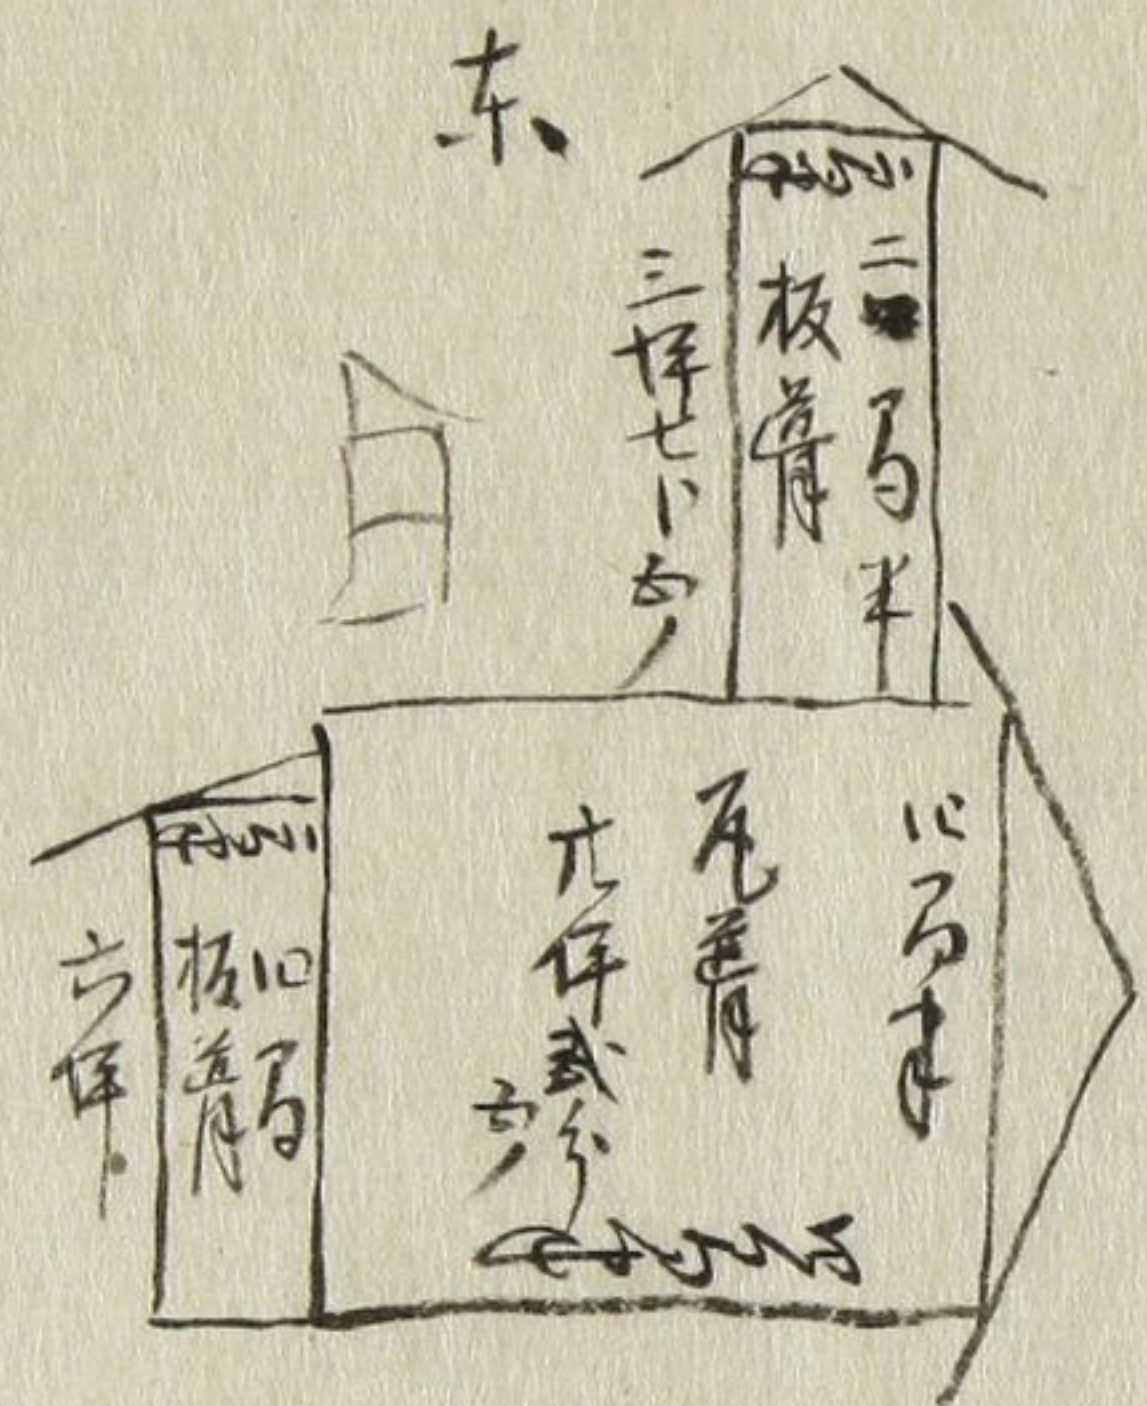 東
二間半
板葺
三坪七分五厘
四間半
瓦葺
廿坪弐分
五厘
四間
板葺
六坪